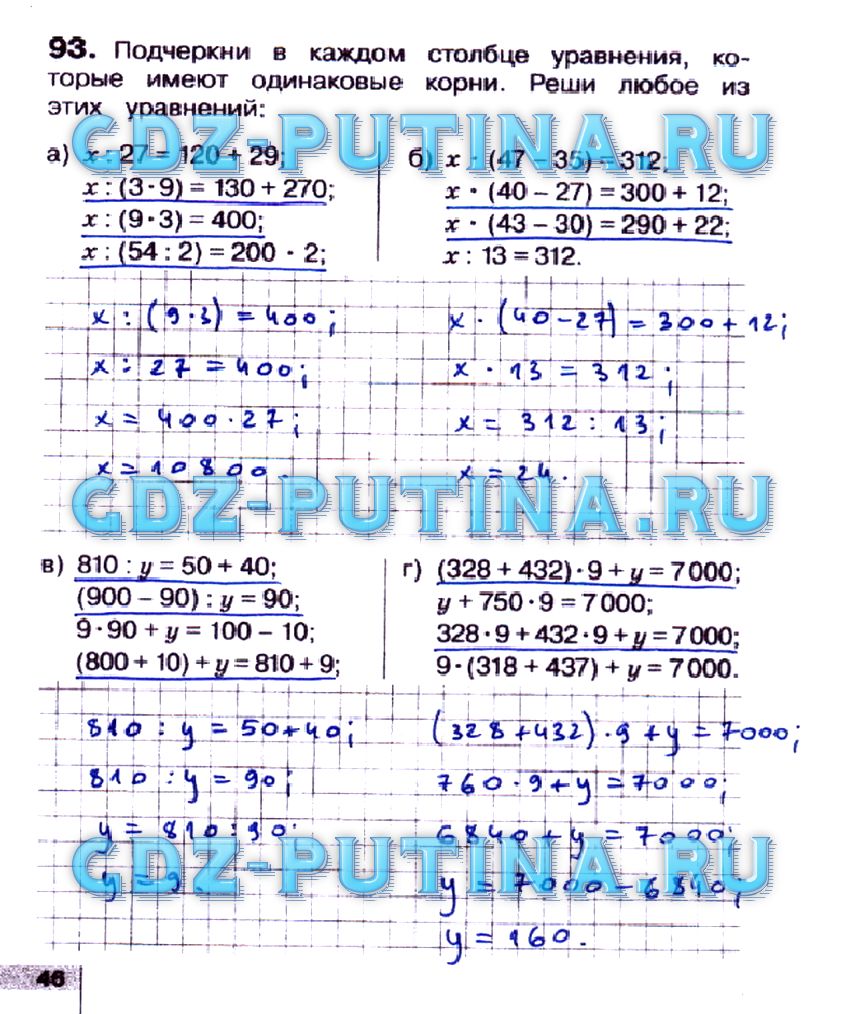 93. Подчеркни в каждом столбце уравнения, ко-
торые имеют одинаковые корни. Реши любое из
этих уравнений:
GDZ-PUTINA.RU
а) x : 27 = 120 + 29;
x : (3 · 9) = 130 + 270;
x : (9 · 3) = 400;
x : (54 : 2) = 200 · 2;
б) x · (47 – 35) = 312;
x · (40 – 27) = 300 + 12;
x · (43 – 30) = 290 + 22;
x : 13 = 312.
x : (9 · 3) = 400;
x : 27 = 400;
x = 400 · 27;
x = 10800.
x · (40 – 27) = 300 + 12;
x · 13 = 312;
x = 312 : 13;
x = 24.
GDZ-PUTINA.RU
в) 810 : y = 50 + 40;
(900 – 90) : y = 90;
9 · 90 + y = 100 – 10;
(800 + 10) + y = 810 + 9;
г) (328 + 432) · 9 + y = 7000;
y + 750 · 9 = 7000;
328 · 9 + 432 · 9 + y = 7000;
9 · (318 + 437) + y = 7000.
810 : y = 50 + 40;
810 : y = 90;
y = 810 : 90;
y = 9.
(328 + 432) · 9 + y = 7000;
760 · 9 + y = 7000;
6840 + y = 7000;
y = 7000 – 6840;
y = 160.
GDZ-PUTINA.RU
46